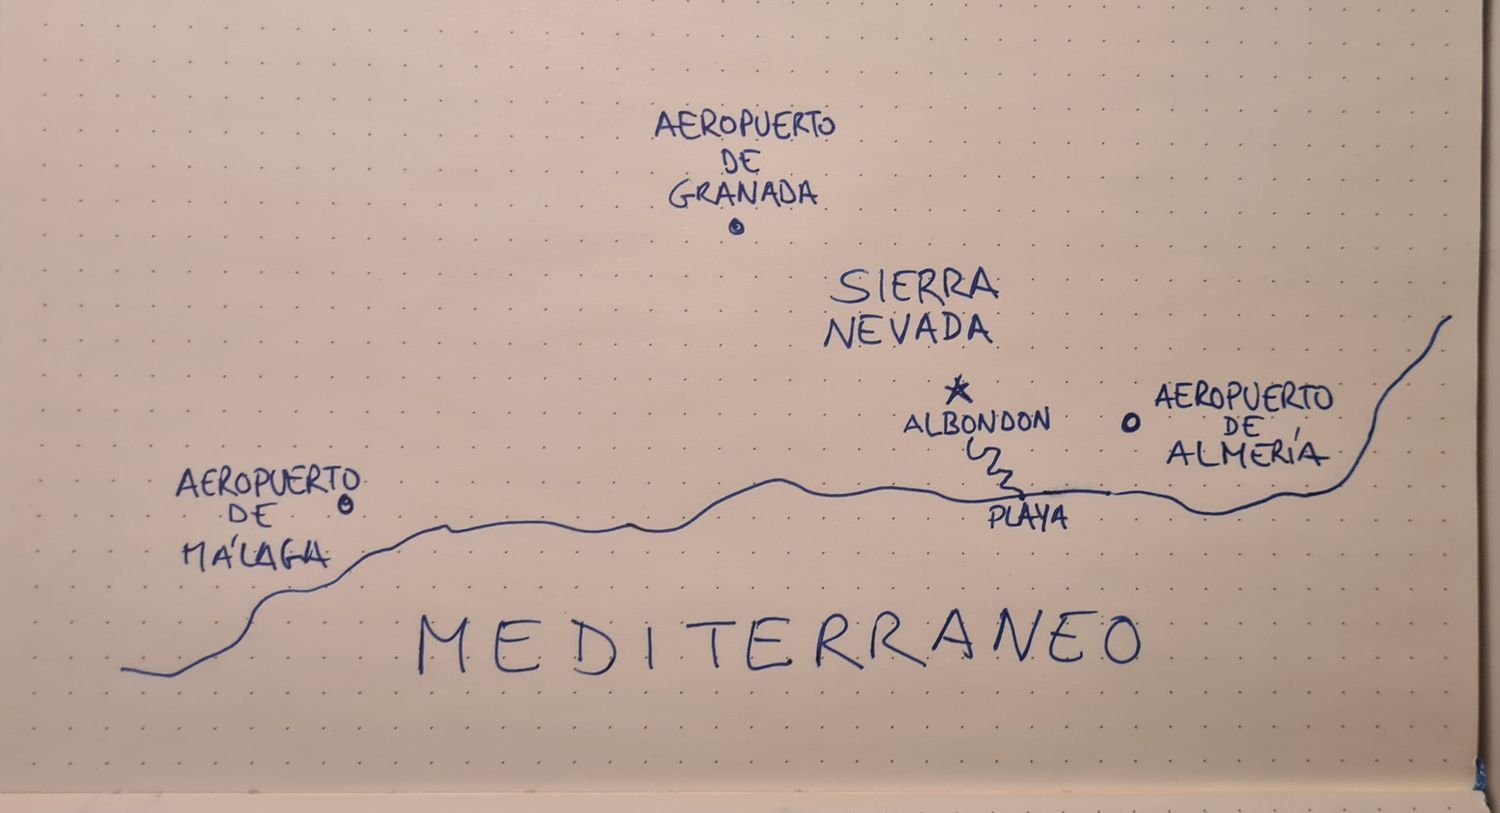 AEROPUERTO
DE
GRANADA
SIERRA
NEVADA
ALBONDON
AEROPUERTO
DE
ALMERÍA
AEROPUERTO
DE
MÁLAGA
PLAYA
MEDITERRANEO